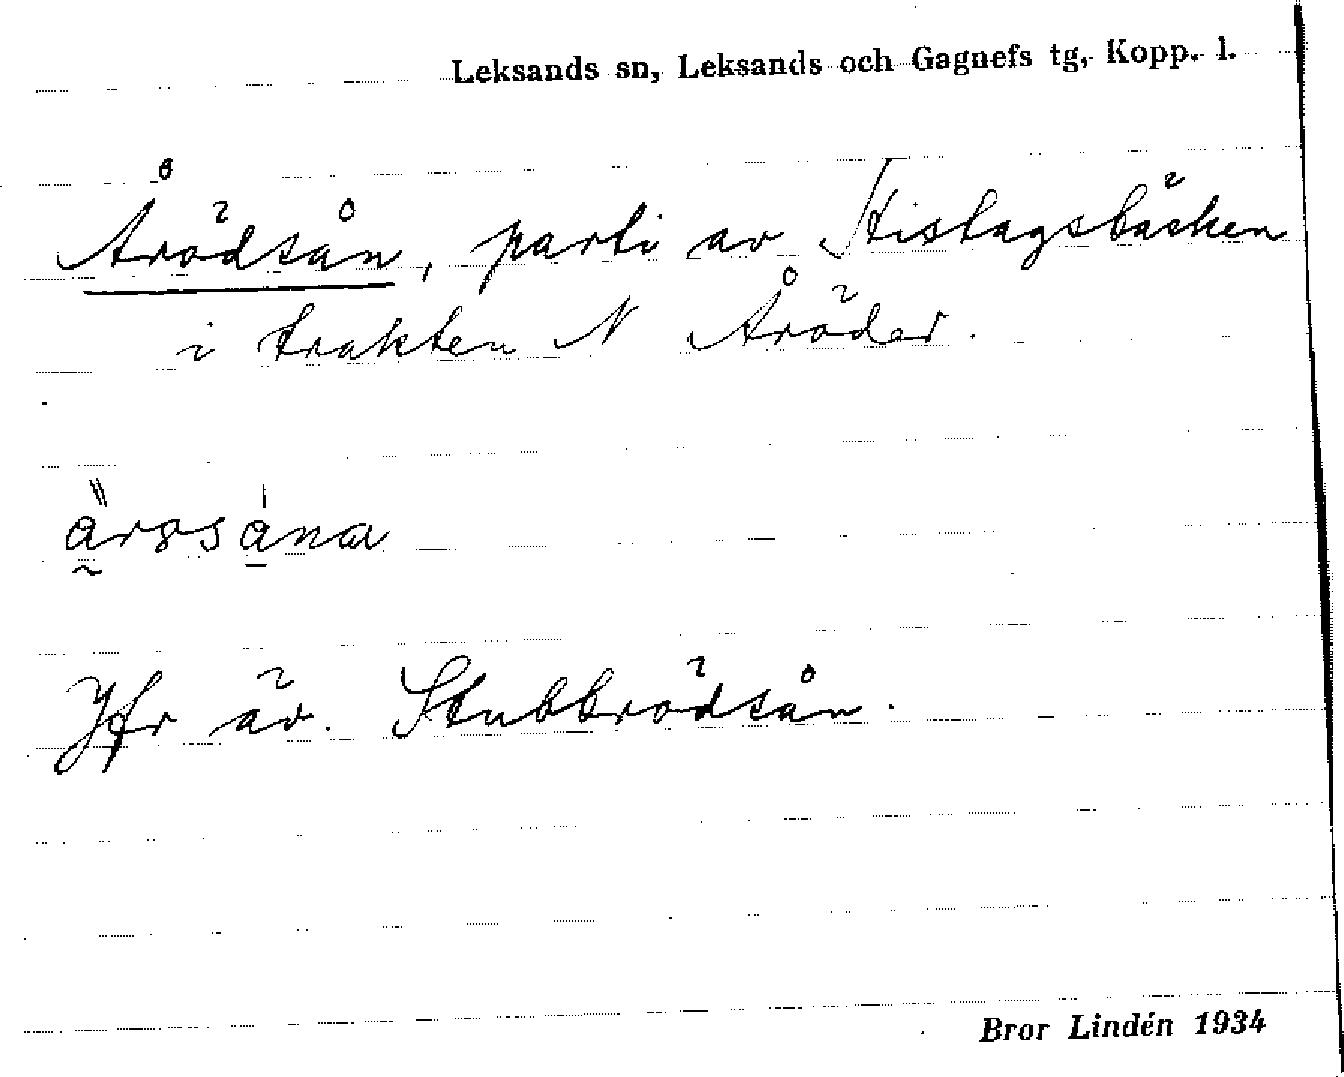 Leksands sn, Leksands och Gagnefs tg, Kopp. l.
Årödsån, parti av Histagsbäcken
i trakten N Åröder.
Jfr äv. Stubbrödsån.
Bror Lindén 1934